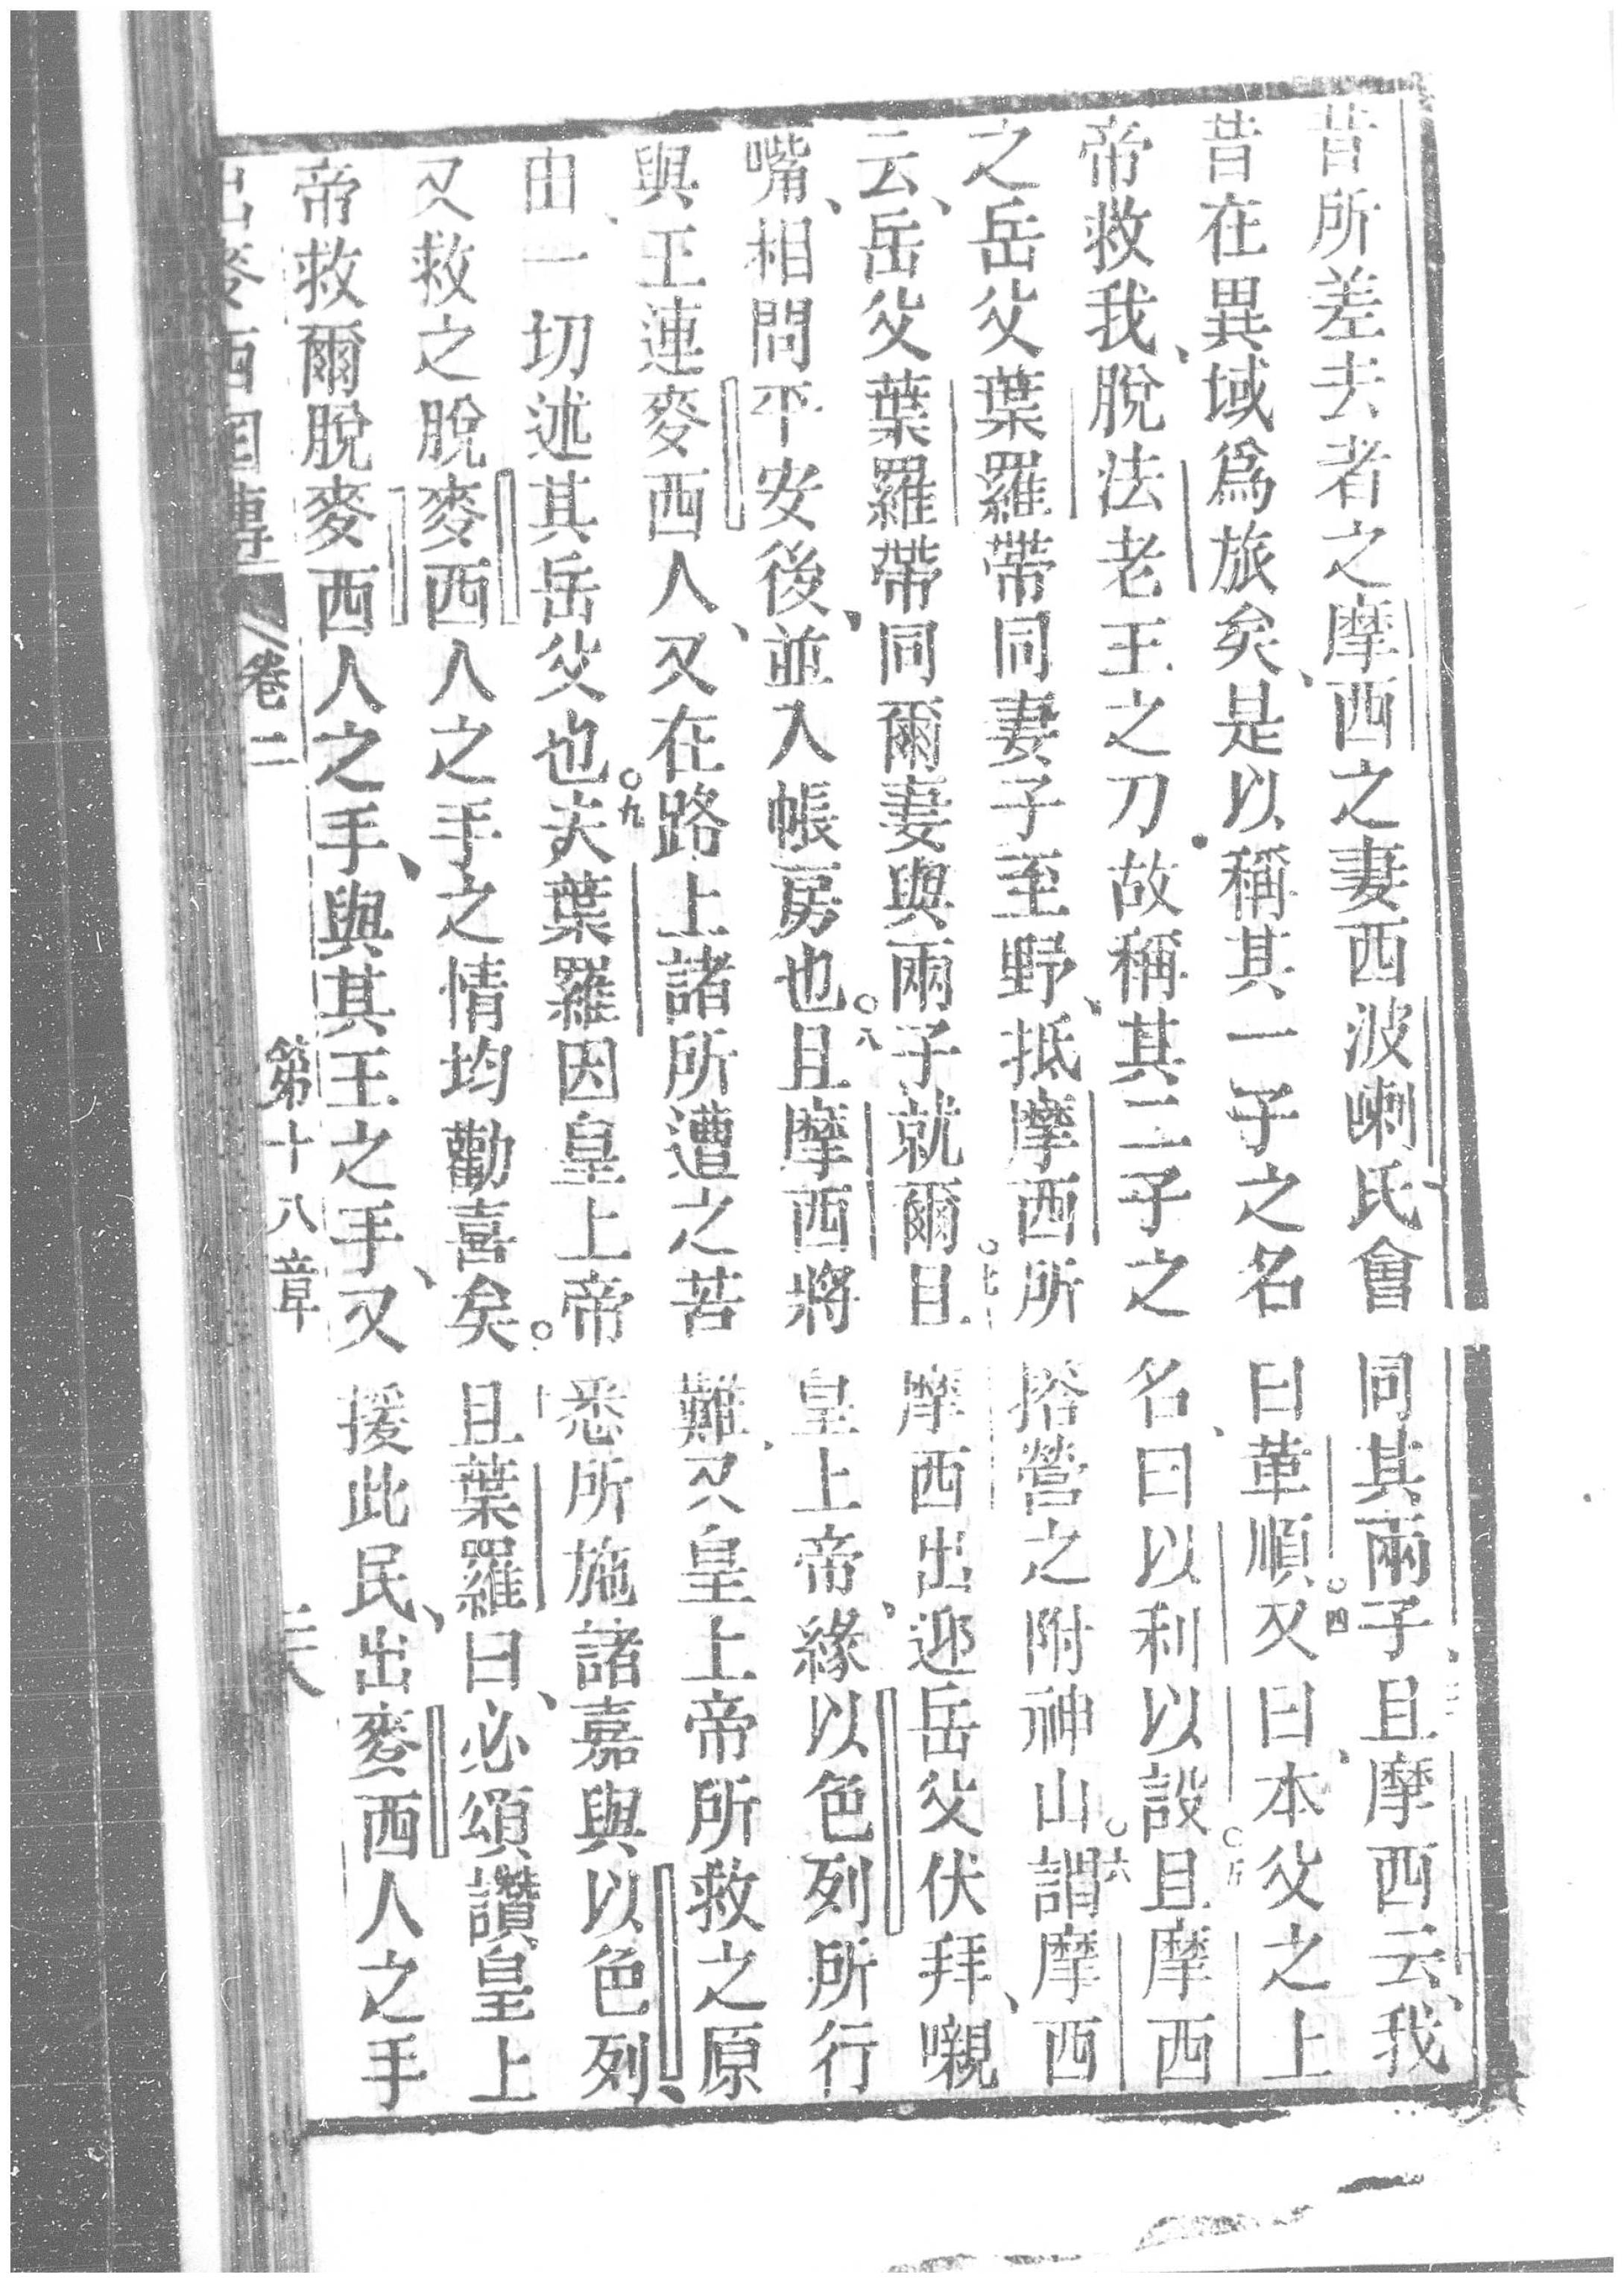 昔所差去者之摩西之妻西波喇氏會同其兩子且摩西云、我
昔在異域爲旅矣、是以稱其一子之名曰革順○四又曰、本父之上
帝救我、脫法老王之刀故稱其二子之名、曰以利以設○五且摩西
之岳父葉羅帶同妻子至野、抵摩西所搭營之附神山○六謂摩西
云、岳父葉羅帶同爾妻與兩子就爾○七且摩西出迎岳父伏拜、嚫
嘴、相問平安後、並入帳房也○八且摩西將皇上帝、緣以色列所行
與王連麥西人、又在路上諸所遭之苦難、又皇上帝所救之原
由、一切述其岳父也○九夫葉羅因皇上帝悉所施諸嘉與以色列、
又救之脫麥西人之手之情均勸喜矣○十且葉羅曰、必頌讚皇上
帝救爾脫麥西人之手、與其王之手、又援此民、出麥西人之手
出麥西國傳 卷二 第十八章